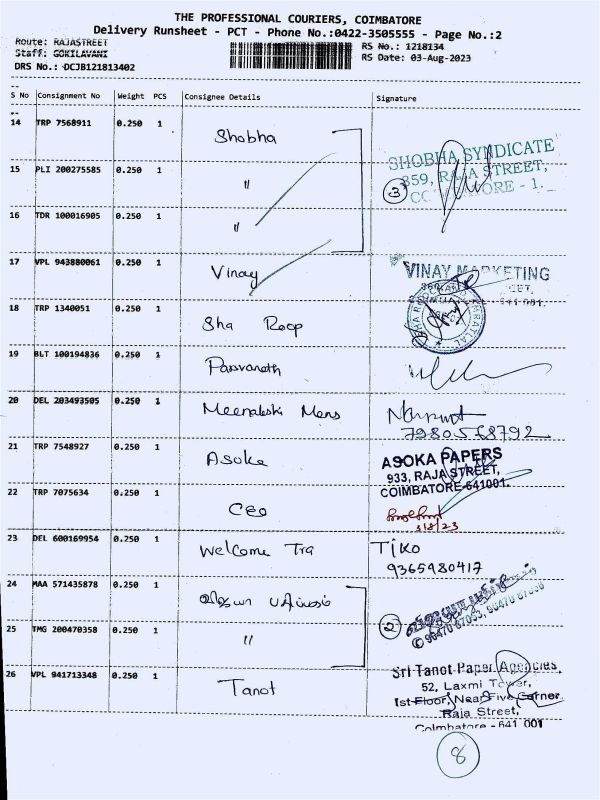 THE PROFESSIONAL COURIERS, COIMBATORE
Delivery Runsheet - PCT - Phone No.:0422-3505555 - Page No.:2
Route: RAJASTREET
RS No.: 1218134
Staff: GOKILAVANI
RS Date: 03-Aug-2023
DRS No.: DCJB121813402
S No Consignment No Weight PCS Consignee Details Signature
14 TRP 7568911 0.250 1 Shobha
SHOBHA SYNDICATE
359, RAJA STREET,
COIMBATORE - 1.
15 PLI 200275585 0.250 1 "
3
16 TDR 100016905 0.250 1 "
17 VPL 943880061 0.250 1 Vinay
VINAY MARKETING
641 001.
18 TRP 1340051 0.250 1 Sha Roop
19 BLT 100194836 0.250 1 Parsvanath
20 DEL 203493505 0.250 1 Meenakshi Mens
7980568792
21 TRP 7548927 0.250 1 Asoka
ASOKA PAPERS
933, RAJA STREET,
COIMBATORE-641001.
22 TRP 7075634 0.250 1 CEO
3/8/23
23 DEL 600169954 0.250 1 Welcome Tra
TiKo
9365980417
24 MAA 571435878 0.250 1 விஜயா பதிப்பகம்
விஜயா பதிப்பகம்
2
25 TMG 200470358 0.250 1 "
26 VPL 941713348 0.250 1 Tanot
Sri Tanot Paper Agencies
52, Laxmi Tower,
Ist Floor, Near Five Corner,
Raja Street,
Coimbatore - 641 001
8